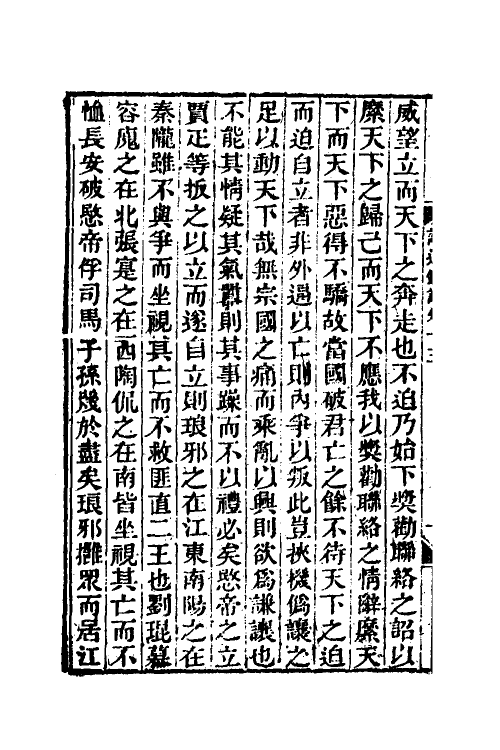 威望立而天下之奔走也不迫乃始下獎勸聯絡之詔以
縻天下之歸己而天下不應我以獎勸聯絡之情辭縻天
下而天下惡得不驕故當國破君亡之餘不待天下之迫
而迫自立者非外逼以亡則內爭以叛此豈挾機僞讓之
足以動天下哉無宗國之痛而乘亂以興則欲爲謙讓也
不能其情疑其氣嚻則其事躁而不以禮必矣愍帝之立
賈疋等扳之以立而遂自立則琅邪之在江東南陽之在
秦隴雖不與爭而坐視其亡而不救匪直二王也劉琨慕
容廆之在北張寔之在西陶侃之在南皆坐視其亡而不
恤長安破愍帝俘司馬子孫幾於盡矣琅邪擁眾而居江